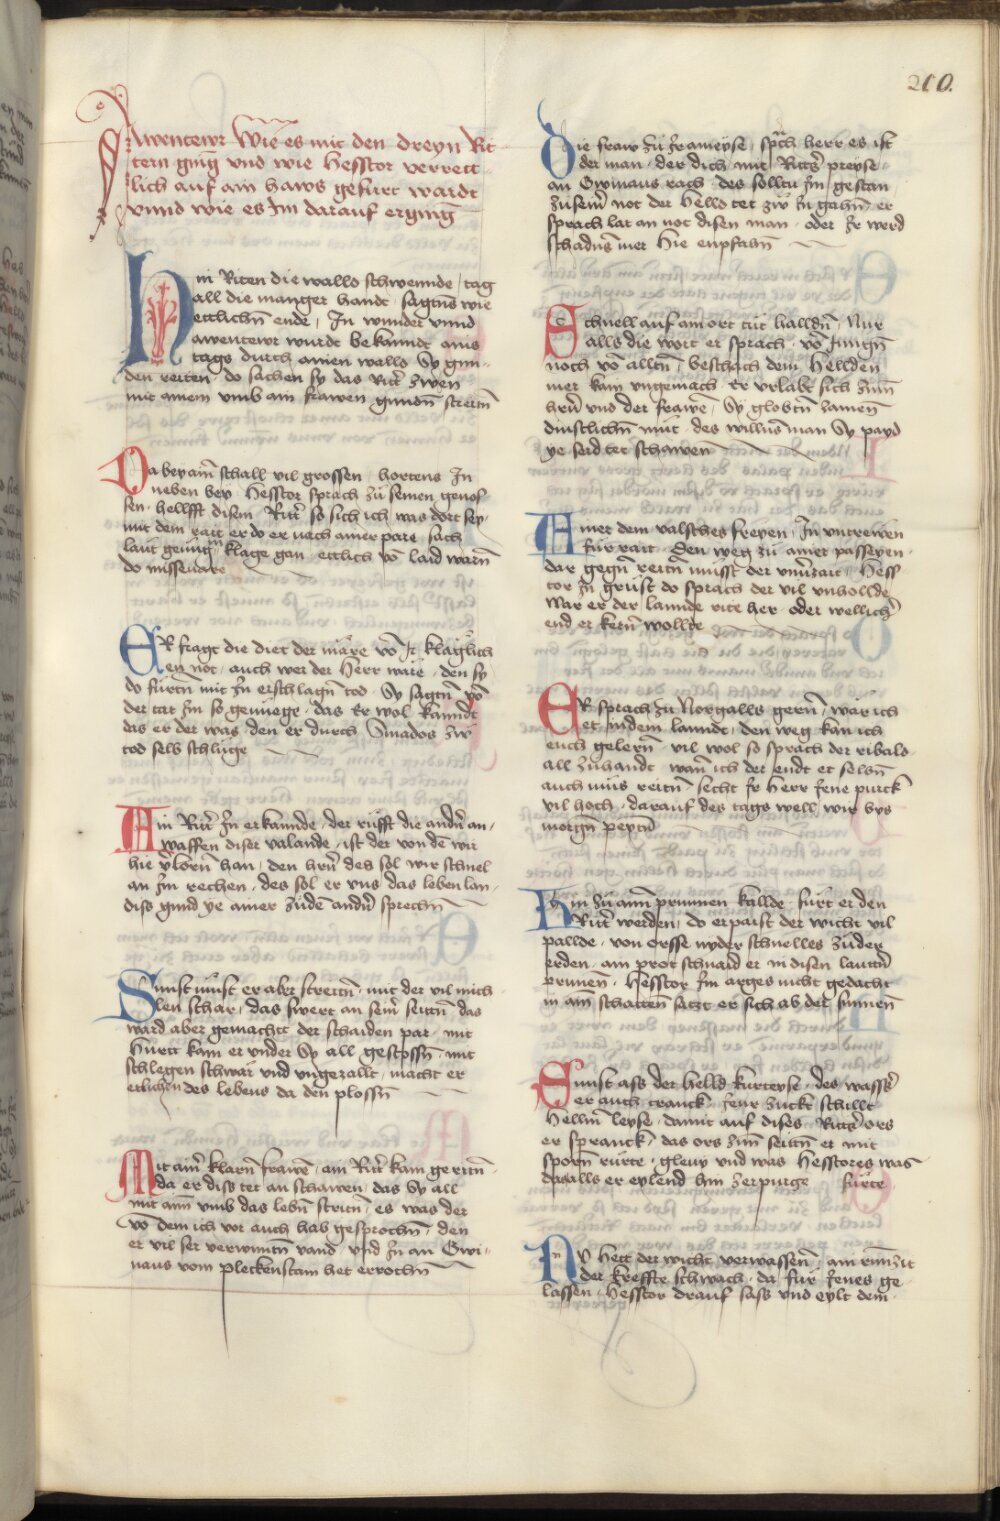 210.
Awentewr Wie es mit den dreyn Rit
tern ging vnd wie Hesstor verrett
lich auf ain haws gefürt wardt
vnnd wie es Im darauf erging̅
Hin Riten die walld schwennde / tag
all die manger handt · sagtn̅s wie
ettlichn̅ ende / In wunder vnnd
awentewr wurdt bekanndt ains
tags durch ainen walld Sy gun-
den reiten · do sachen sy das Ritt̓ zwen
mit ainem vmb ain frawen gundn̅ streitn̅
Da bey aim̅ schall vil grossen / hortens In
neben bey · Hesstor sprach zü seinen genos
sen · hellfft disem Ritt̓ so sich ich was dort sey ·
mit dem rait er do er nach ainer pare sach
laut genüg klage gan · ettlich vo̅ laid warn̅
do misseuare
ER fragt die diet der märe vo̅ Ir kläglich
en not · auch wer der Herr wäre / den sy
do fürtn̅ mit In erschlagn̅ tod · Sy sagtn̅ vo̅
der tat Im so genuege · das Er wol kanndt
das er der was den er durch Sinados zw̅
tod selb schlüge
Ain Ritt̓ In erkannde · der rufft die andn̓ an ·
waffen diser valande / ist der von de wir
hie v̓lorn̅ han / den hrn̅ des sol wir schnel
an Im rechen · des sol er vns das leben lan ·
diss gund ye ainer züde̅ andn̓ sprechn̅
Sunst müst er aber streitn̅ · mit der vil mich
len schar / das swert an sein̓ seittn̅ das
ward aber gemacht der schaiden par · mit
Huert kam er vnder Sy all gestossn̅ · mit
schlegen schwär vnd vngezallt / macht er
etlichen des lebens da den plossn̅
Mit aim̓ klarn̅ frawe̅ · ain Ritt̓ kam geritn̅ ·
da er diss tet an schawen / das Sy all
mit aim̅ vmb das lebn̅ stritn̅ / es was der
vo̅ dem ich vor auch hab gesprochn̅ / den
er vil ser verwuntn̅ vand · vnd In an Gwi-
naus vom pleckenstain het errochn̅
Die fraw zü Irameyse / sprach herr es ist
der man · der dich mit Ritt̓s preyse ·
an Gwinaus rach · des solltu Im gestan
zu sein̓ not der Helld tet zw̅ In gahn̅ er
sprach lat an not disen man · oder Ir werd
schadn̅s mer hie enpfahn̅
Schnell auf ain ort tüt halldn̅ / Nur
alls die wort er sprach · vo̅ Jungn̅
noch vo̅ alltn̅ / beschach dem Hellden
mer kain vngemach Er vrlabt sich zum̅
hrn̅ vnd der frawe̅ / Sy globtn̅ zamen̅
dinstlichn̅ müt · des willn̅s man Sy payd
ye seid tet schawen
Ainer dem valsches freyen / In vntrewen
für rait · Den weg zü ainer passeyen ·
dar gegn̅ reitn̅ müsst der vnu̓zait · Hess
tor In grüst do sprach der vil vnhollde
war er der lannde rite her · oder wellich̓
end er kern̅ wollte
ER sprach zü Norgalls gern̅ / war ich
et in dem lanndt / den weg kan ich
euch gelern̅ vil wol so sprach der ribald ·
all zühandt wan̅ ich der endt et selbn̅
auch müs reitn̅ · secht Ir Herr Jene purck
vil hoch · darauf des tags well wir vns
morgn̅ peytn̅
Hin zü aim̅ prunnen kallde · fürt er den
Ritt̓ werden / do erpaist der wicht vil
pallde · von Orsse nyder schnelles züder
erden · ain prot schnaid er in disen lauttn̅
prunen̅ · Hesstor Im arges nicht gedacht
in aim̅ schatten̅ satzt er sich ab der sunnen̅
Sunst ass der Helld kurteyse / des wasss̓
er auch tranck Jenr zuckt schillt
Hellm̅ leyse / damit auf dises Ritt̓s ors
er spranck / das ors zum̅ seittn̅ er mit
sporn̅ rürte · gleuy vnd was Hesstores was
das alls er eylend hin zer purge fürte
NV hett der wicht verwassen̅ / ain run̅zit
der krefft̅ schwach · da für Jenes ge
lassen · Hesstor drauf sass vnd eylt dem ·